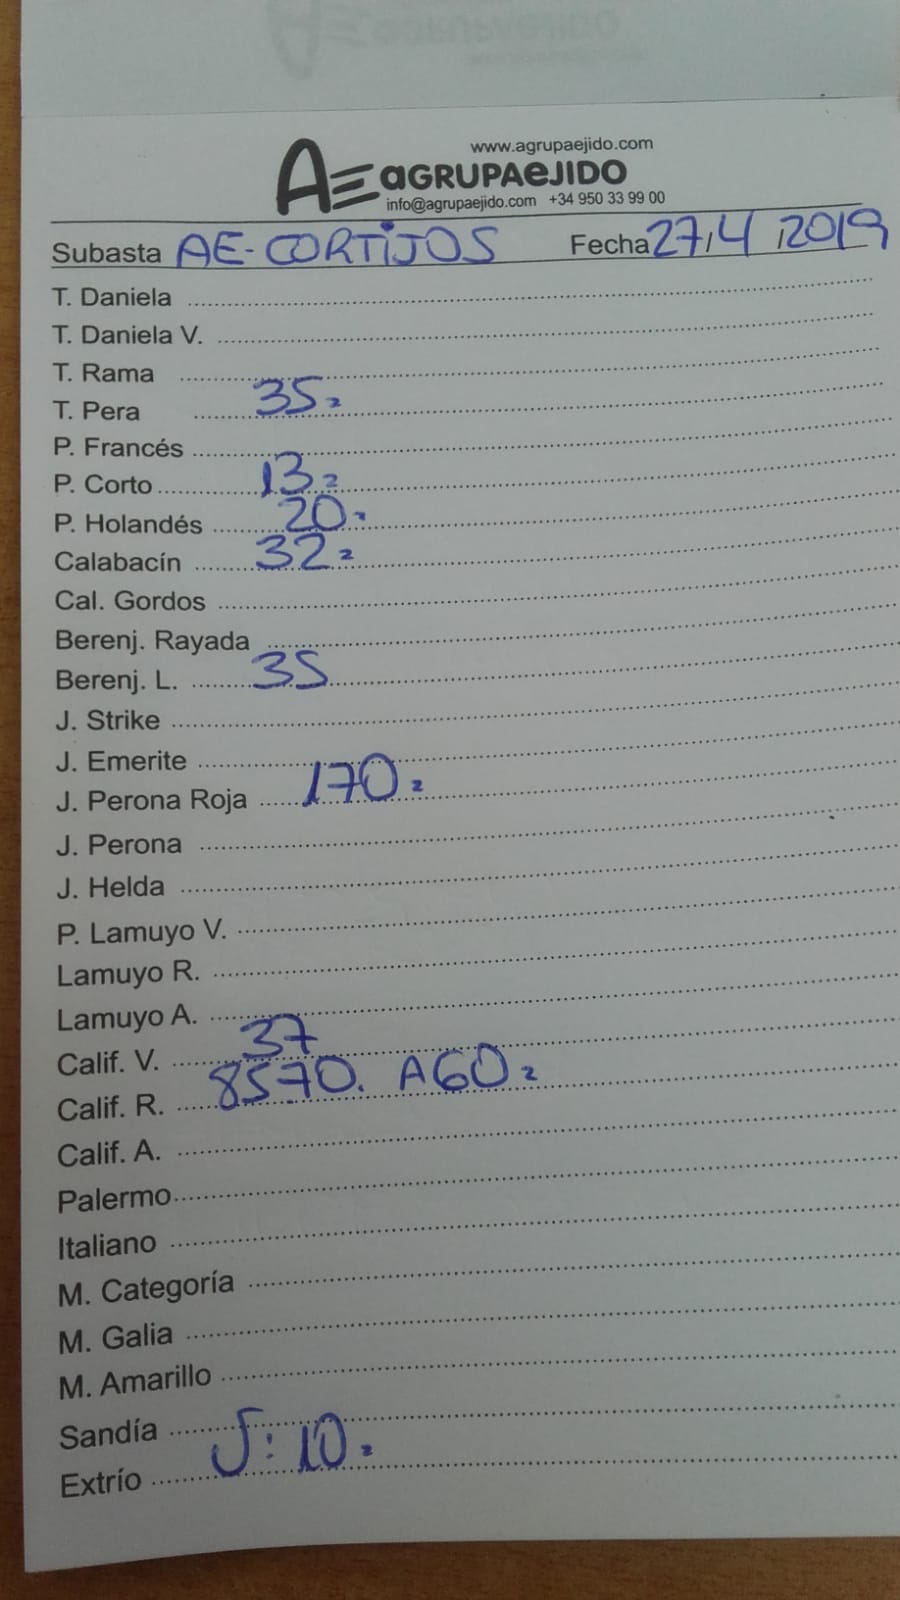 www.agrupaejido.com
AE aGRUPAeJIDO
info@agrupaejido.com +34 950 33 99 00
Subasta AE-CORTIJOS Fecha 27/4/2019
T. Daniela
T. Daniela V.
T. Rama
T. Pera 35
P. Francés
P. Corto 13
P. Holandés 20
Calabacín 32
Cal. Gordos
Berenj. Rayada
Berenj. L. 35
J. Strike
J. Emerite
J. Perona Roja 170
J. Perona
J. Helda
P. Lamuyo V.
Lamuyo R.
Lamuyo A.
Calif. V. 37
Calif. R. 8570. A60
Calif. A.
Palermo
Italiano
M. Categoría
M. Galia
M. Amarillo
Sandía
Extrío J: 10